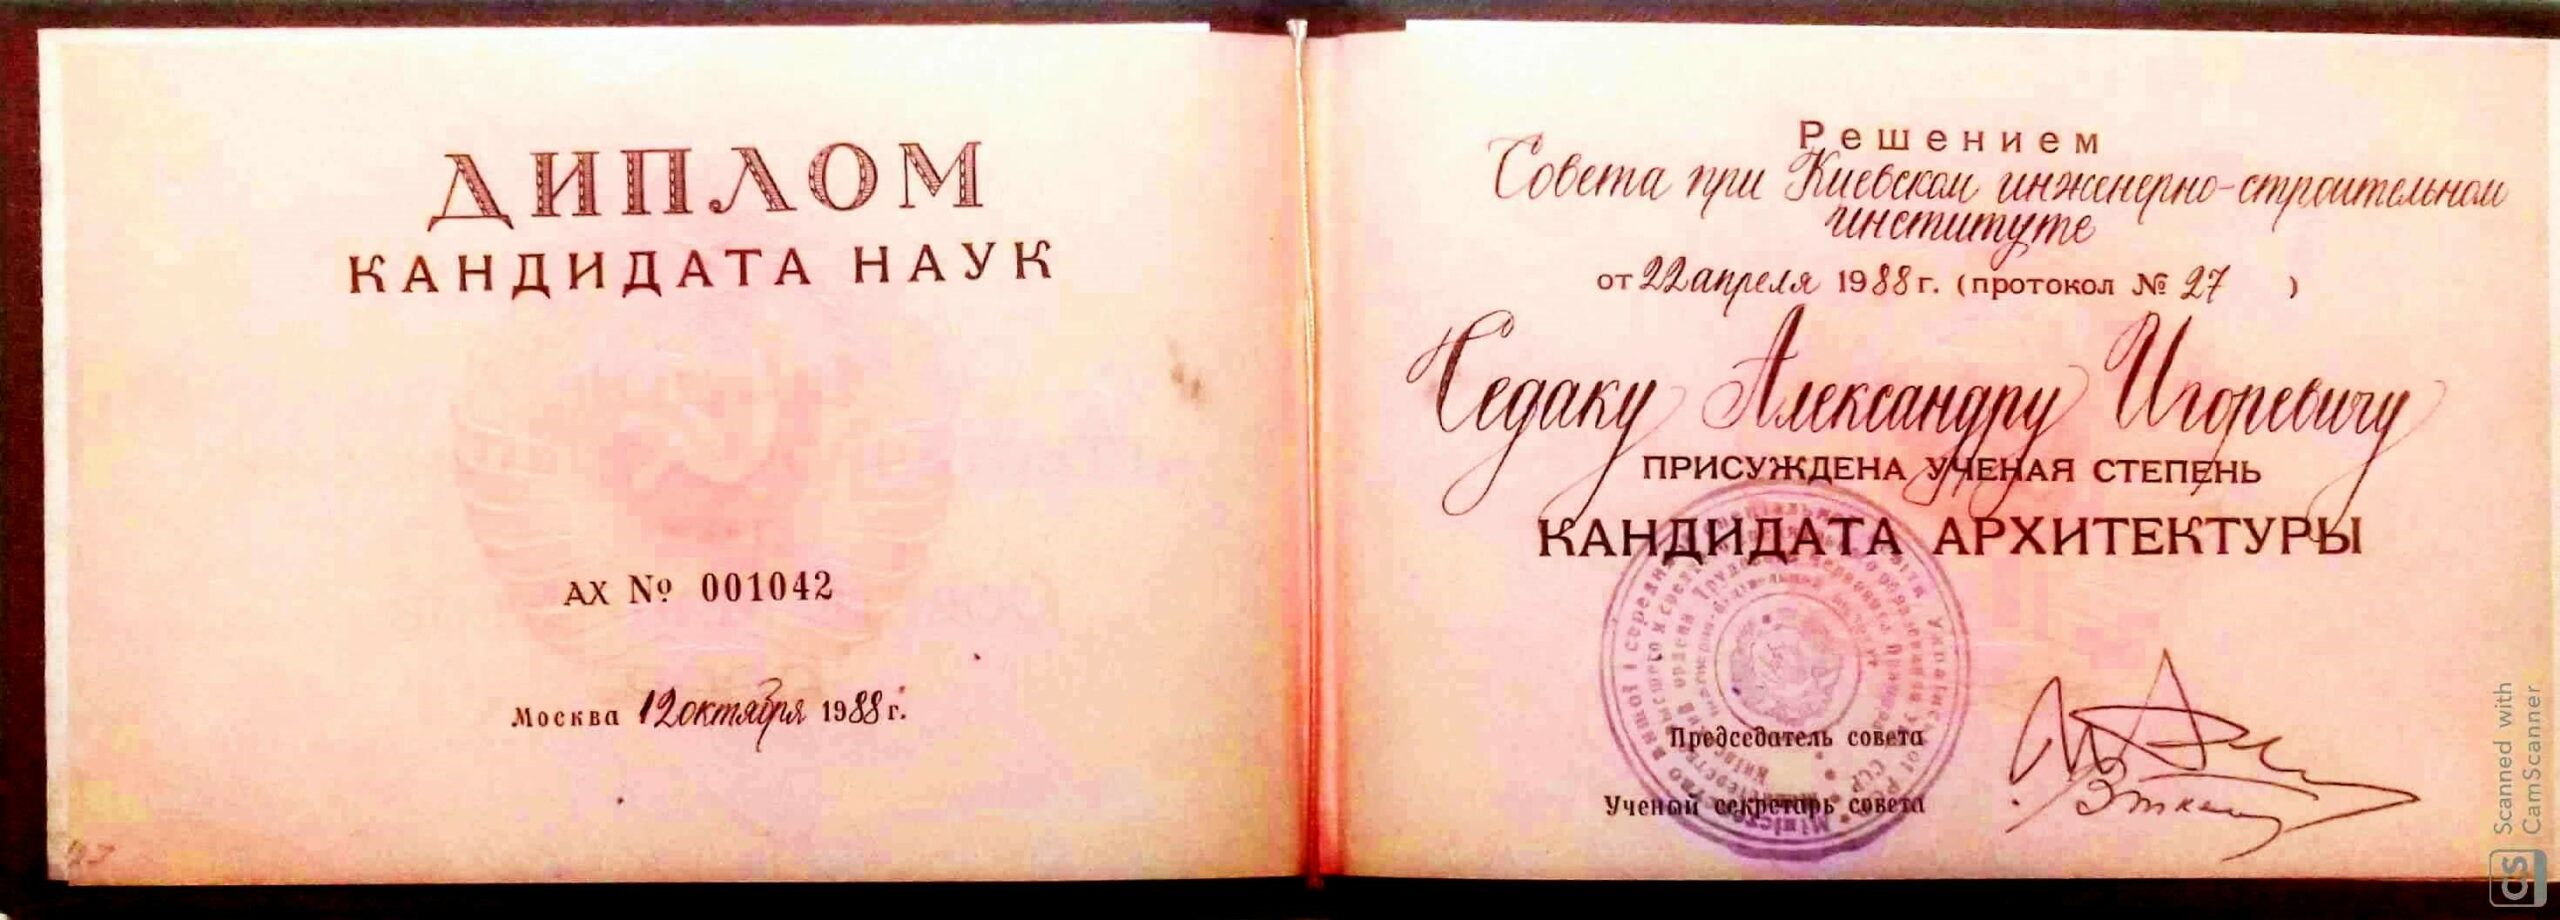 ДИПЛОМ
КАНДИДАТА НАУК
АХ № 001042
Москва 12 октября 1988 г.
Решением
Совета при Киевском инженерно-строительном
институте
от 22 апреля 1988 г. (протокол № 27 )
Седаку Александру Игоревичу
ПРИСУЖДЕНА УЧЕНАЯ СТЕПЕНЬ
КАНДИДАТА АРХИТЕКТУРЫ
Председатель совета
Ученый секретарь совета
Scanned with
CamScanner
CS